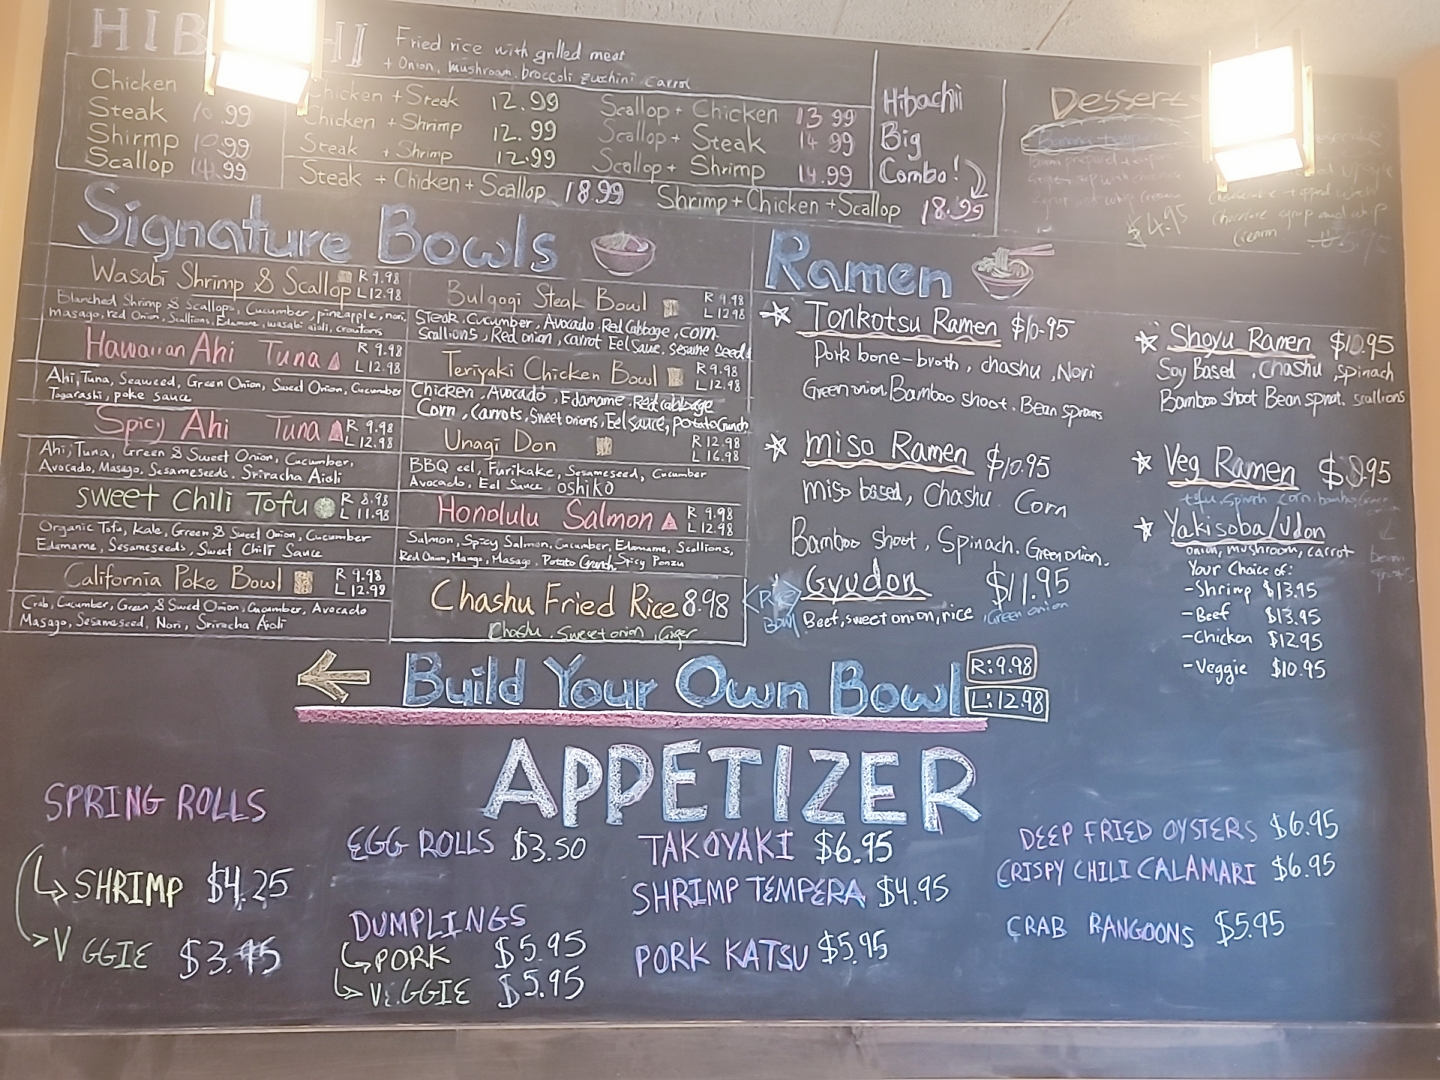 HIB HI
Fried rice with grilled meat
+ Onion, mushroom, broccoli zucchini carrot
Chicken
Steak 10.99
Shirmp 10.99
Scallop 14.99
Chicken + Steak 12.99
Chicken + Shrimp 12.99
Steak + Shrimp 12.99
Scallop + Chicken 13.99
Scallop + Steak 14.99
Scallop + Shrimp 14.99
Steak + Chicken + Scallop 18.99
Shrimp + Chicken + Scallop 18.99
Hibachi
Big
Combo!
Dessert
$4.95
Signature Bowls
Wasabi Shrimp & Scallop R 9.98
L 12.98
Blanched Shrimp & Scallops, Cucumber, pineapple, nori,
Masago, red Onion, Scallions, Edamame, wasabi aioli, croutons
Hawaiian Ahi Tuna R 9.98
L 12.98
Ahi, Tuna, Seaweed, Green Onion, Sweet Onion, Cucumber
Togarashi, poke sauce
Spicy Ahi Tuna R 9.98
L 12.98
Ahi, Tuna, Green & Sweet Onion, Cucumber,
Avocado, Masago, Sesameseeds, Sriracha Aioli
Sweet Chili Tofu R 8.98
L 11.98
Organic Tofu, Kale, Green & Sweet Onion, Cucumber
Edamame, Sesameseeds, Sweet Chili Sauce
California Poke Bowl R 9.98
L 12.98
Crab, Cucumber, Green & Sweet Onion, Cucumber, Avocado
Masago, Sesameseed, Nori, Sriracha Aioli
Bulgogi Steak Bowl R 9.98
L 12.98
Steak, Cucumber, Avocado, Red Cabbage, corn
Scallions, Red onion, carrot Eel Sauce, sesame Seeds
Teriyaki Chicken Bowl R 9.98
L 12.98
Chicken, Avocado, Edamame, Red cabbage
Corn, carrots, Sweet onions, Eel sauce, potato Crunch
Unagi Don R 12.98
L 16.98
BBQ eel, Furikake, Sesameseed, Cucumber
Avocado, Eel Sauce, oshiko
Honolulu Salmon R 9.98
L 12.98
Salmon, Spicy Salmon, Cucumber, Edamame, Scallions,
Red Onion, Mango, Masago, Potato Crunch, Spicy Ponzu
Chashu Fried Rice 8.98
Chashu, Sweet onion, Ginger
Ramen
Tonkotsu Ramen $10.95
Pork bone-broth, chashu, Nori
Green onion, Bamboo shoot, Bean sprouts
Miso Ramen $10.95
Miso based, Chashu Corn
Bamboo Shoot, Spinach, Green onion,
Gyudon $11.95
Rice
Bowl
Beef, sweet onion, rice, Green onion
Shoyu Ramen $10.95
Soy Based, Chashu, spinach
Bamboo shoot Bean sprout, scallions
Veg Ramen
Yakisoba/Udon
onion, mushroom, carrot
Your Choice of:
-Shrimp $13.95
-Beef $13.95
-Chicken $12.95
-Veggie $10.95
Build Your Own Bowl R: 9.98
L: 12.98
APPETIZER
SPRING ROLLS
SHRIMP $4.25
V GGIE $3.95
EGG ROLLS $3.50
DUMPLINGS
PORK $5.95
VEGGIE $5.95
TAKOYAKI $6.95
SHRIMP TEMPERA $4.95
PORK KATSU $5.95
DEEP FRIED OYSTERS $6.95
CRISPY CHILI CALAMARI $6.95
CRAB RANGOONS $5.95